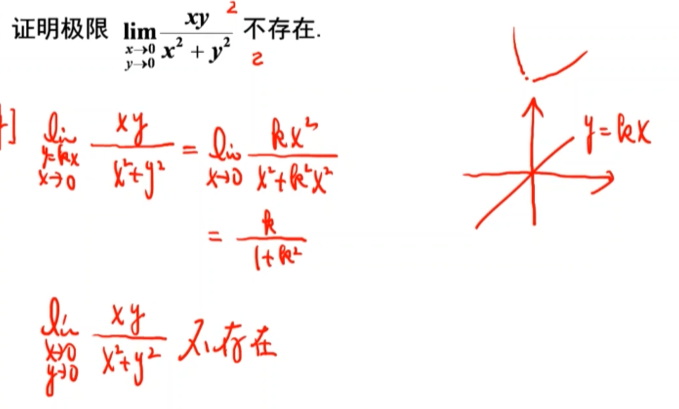 证明极限 lim_{x→0, y→0} xy / (x² + y²) 不存在.
2
2
] lim_{y=kx, x→0} xy / (x²+y²) = lim_{x→0} kx² / (x²+k²x²)
= k / (1+k²)
lim_{x→0, y→0} xy / (x²+y²) 不存在
y=kx